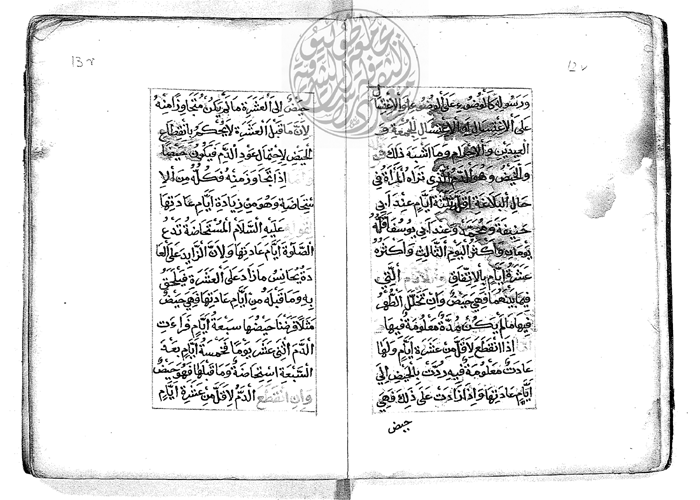 12v
ورسوله كالوضوء على الوضوء والاغتسال
على الاغتسال او الاغتسال للجمعة و
العيدين والاحرام وما اشبه ذلك
والحيض وهو الدم الذي تراه المرأة في
حال البلاغة اقله ثلثة ايام عند ابي
حنيفة ومحمد وعند ابي يوسف اقله
يومان واكثر اليوم الثالث واكثره
عشرة ايام بالاتفاق التي
فيما بينهما فهي حيض وان تخلل الطهر
فيها ما لم يكن مدة معلومة فيها
اذا انقطع لاقل من عشرة ايام ولها
عادت معلومة فيه ردت بالحيض الى
ايام عادتها واذا زادت على ذلك فهي
حيض
13r
حيض الى العشرة ما لم يكن متجاوزا منه
لان ما قبل العشرة لا يحكم بانقطاع
الحيض لاحتمال عود الدم فيكون حيضا
اذا تجاوز منه فكله من الا
ستحاضة وهو من زيادة ايام عادتها
عليه السلام المستحاضة تدع
الصلوة ايام عادتها ولان الزايد على العا
دة يجانس ما زاد على العشرة فيلحق
به وما قبله من ايام عادتها فهي حيض
مثلا فرضنا حيضها سبعة ايام فراءت
الدم اثنى عشر يوما فخمسة ايام بعد
السبعة استحاضة وما قبلها فهو حيض
وان انقطع الدم لاقل من عشرة ايام